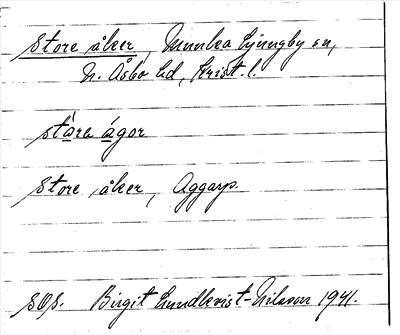 Store åker, Munka Ljungby sn,
N. Åsbo hd, Krist. l.
stòra ágor
Store åker, Aggarp.
SOS. Birgit Lundkvist-Nilsson 1941.